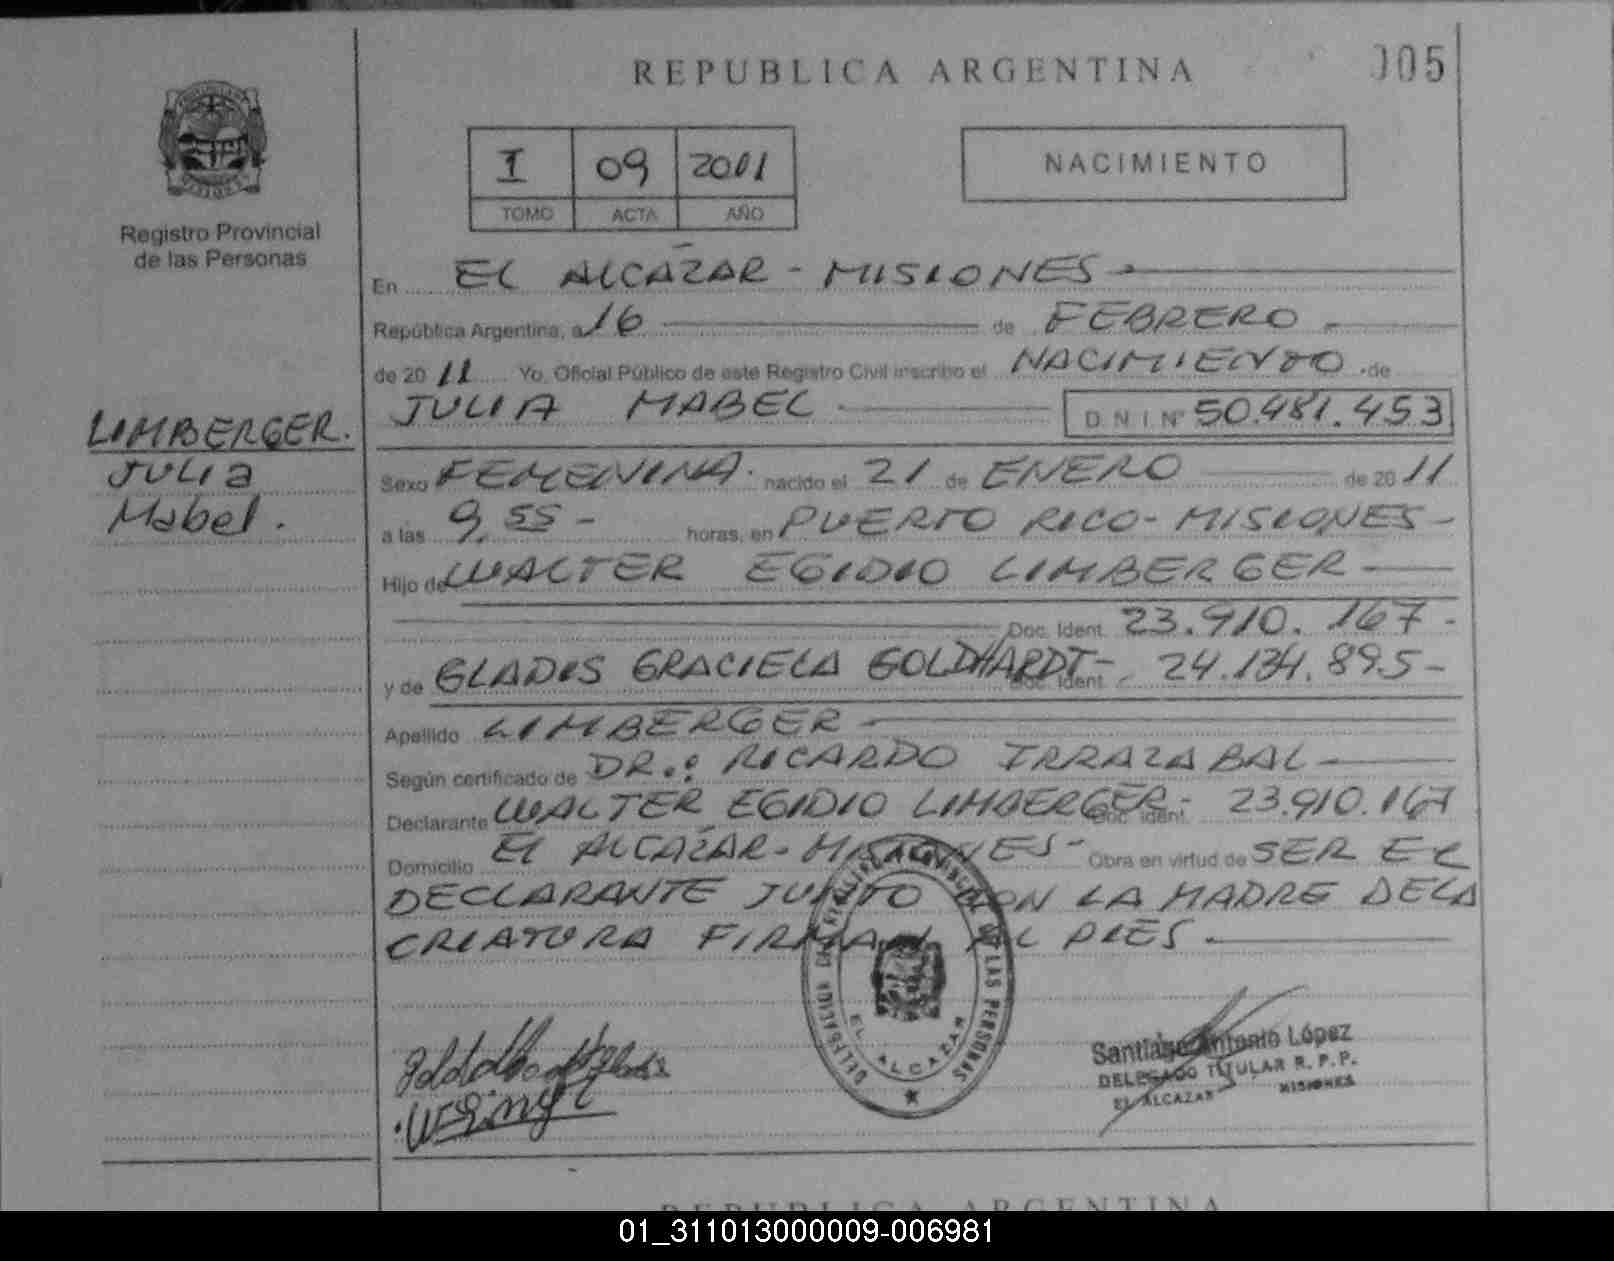 REPUBLICA ARGENTINA
005
I 09 2011
TOMO ACTA AÑO
NACIMIENTO
Registro Provincial
de las Personas
En EL ALCAZAR - MISIONES
República Argentina, a 16 de FEBRERO
de 2011 Yo, Oficial Público de este Registro Civil inscribo el NACIMIENTO de
JULIA MABEL D.N.I. Nº 50.481.453
LIMBERGER.
JULIA
Mabel.
Sexo FEMENINA. nacido el 21 de ENERO de 2011
a las 9,55 - horas, en PUERTO RICO - MISIONES -
Hijo de WALTER EGIDIO LIMBERGER
Doc. Ident. 23.910.167 -
y de GLADIS GRACIELA GOLDHARDT - Doc. Ident. 24.134.895 -
Apellido LIMBERGER
Según certificado de DR.: RICARDO IRRAZABAL
Declarante WALTER EGIDIO LIMBERGER - Doc. Ident. 23.910.167
Domicilio El ALCAZAR - MISIONES - Obra en virtud de SER EL
DECLARANTE JUNTO CON LA MADRE DE LA
CRIATURA FIRMAN AL PIES.
EL ALCAZAR
Santiago Antonio López
DELEGADO TITULAR R.P.P.
EL ALCAZAR MISIONES
REPUBLICA ARGENTINA
01_311013000009-006981